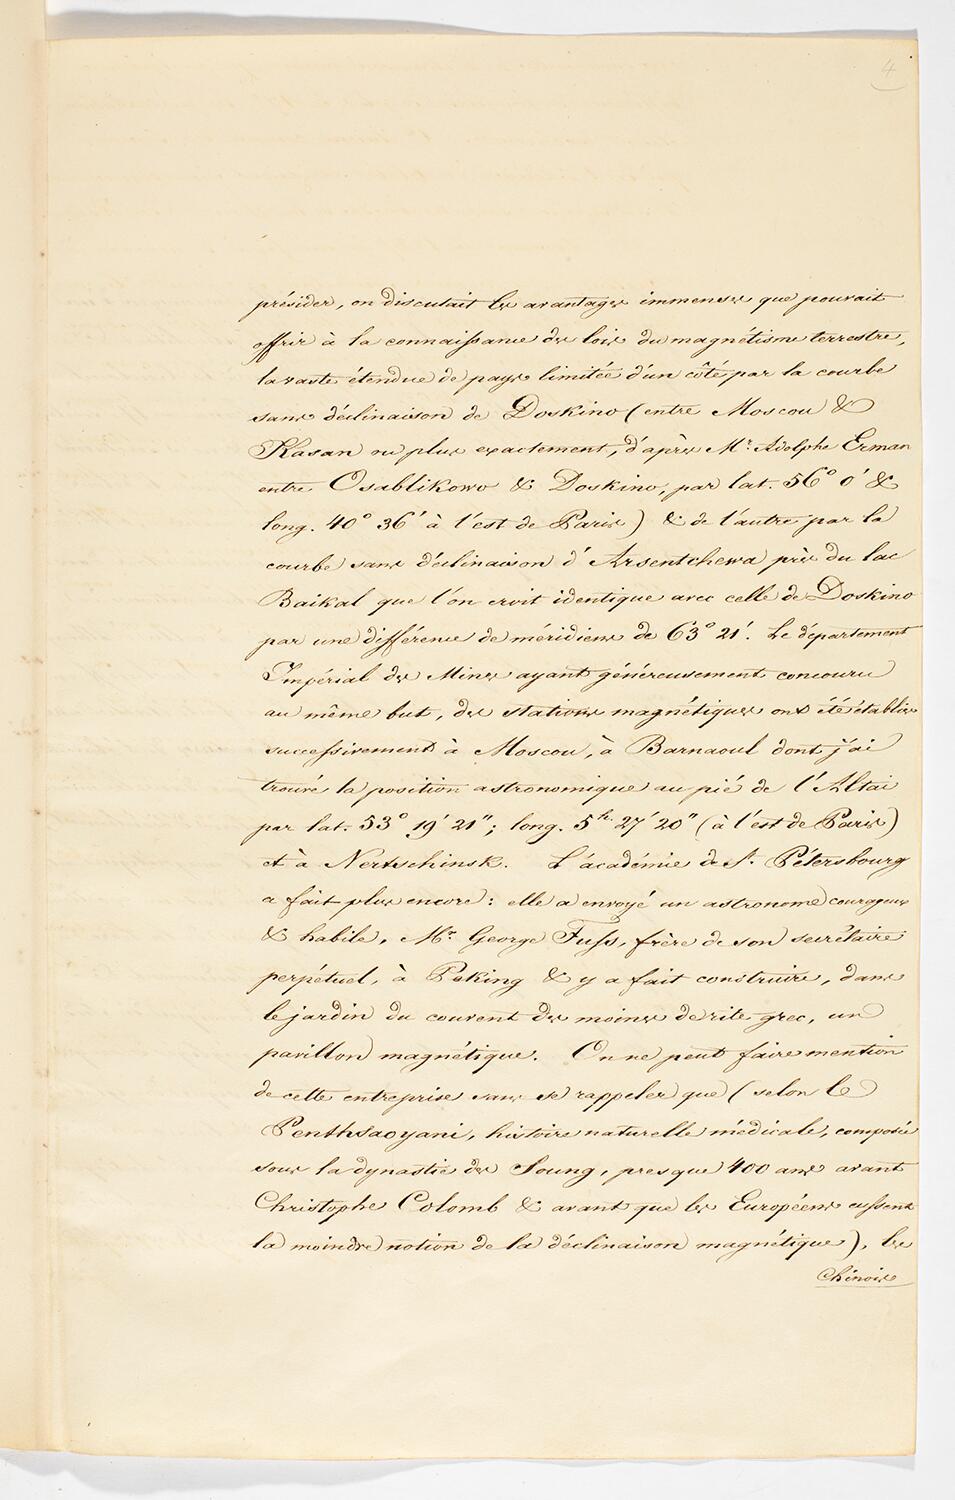 4
présider, on discutait les avantages immenses que pouvait
offrir à la connaissance des lois du magnétisme terrestre,
la vaste étendue de pays limitée d'un côté par la courbe
sans déclinaison de Doskino (entre Moscou &
Kasan ou plus exactement, d'après Mr. Adolphe Erman
entre Osablikowo & Doskino, par lat. 56° 0' &
long. 40° 36' à l'est de Paris) & de l'autre par la
courbe sans déclinaison d'Arsentchewa près du lac
Baikal que l'on croit identique avec celle de Doskino
par une différence de méridiens de 63° 21'. Le département
Impérial des Mines ayant généreusement concouru
au même but, des stations magnétiques ont été établies
successivement à Moscou, à Barnaoul dont j'ai
trouvé la position astronomique au pié de l'Altai
par lat. 53° 19' 21"; long. 5h. 27' 20" (à l'est de Paris)
et à Nertschinsk. L'académie de St. Pétersbourg
a fait plus encore: elle a envoyé un astronome courageux
& habile, Mr. George Fuss, frère de son secrétaire
perpétuel, à Peking & y a fait construire, dans
le jardin du couvent des moines de rite grec, un
pavillon magnétique. On ne peut faire mention
de cette entreprise sans se rappeler que (selon le
Penthsaoyani, histoire naturelle médicale, composée
sous la dynastie des Soung, presque 400 ans avant
Christophe Colomb & avant que les Européens eussent
la moindre notion de la déclinaison magnétique), les
Chinois